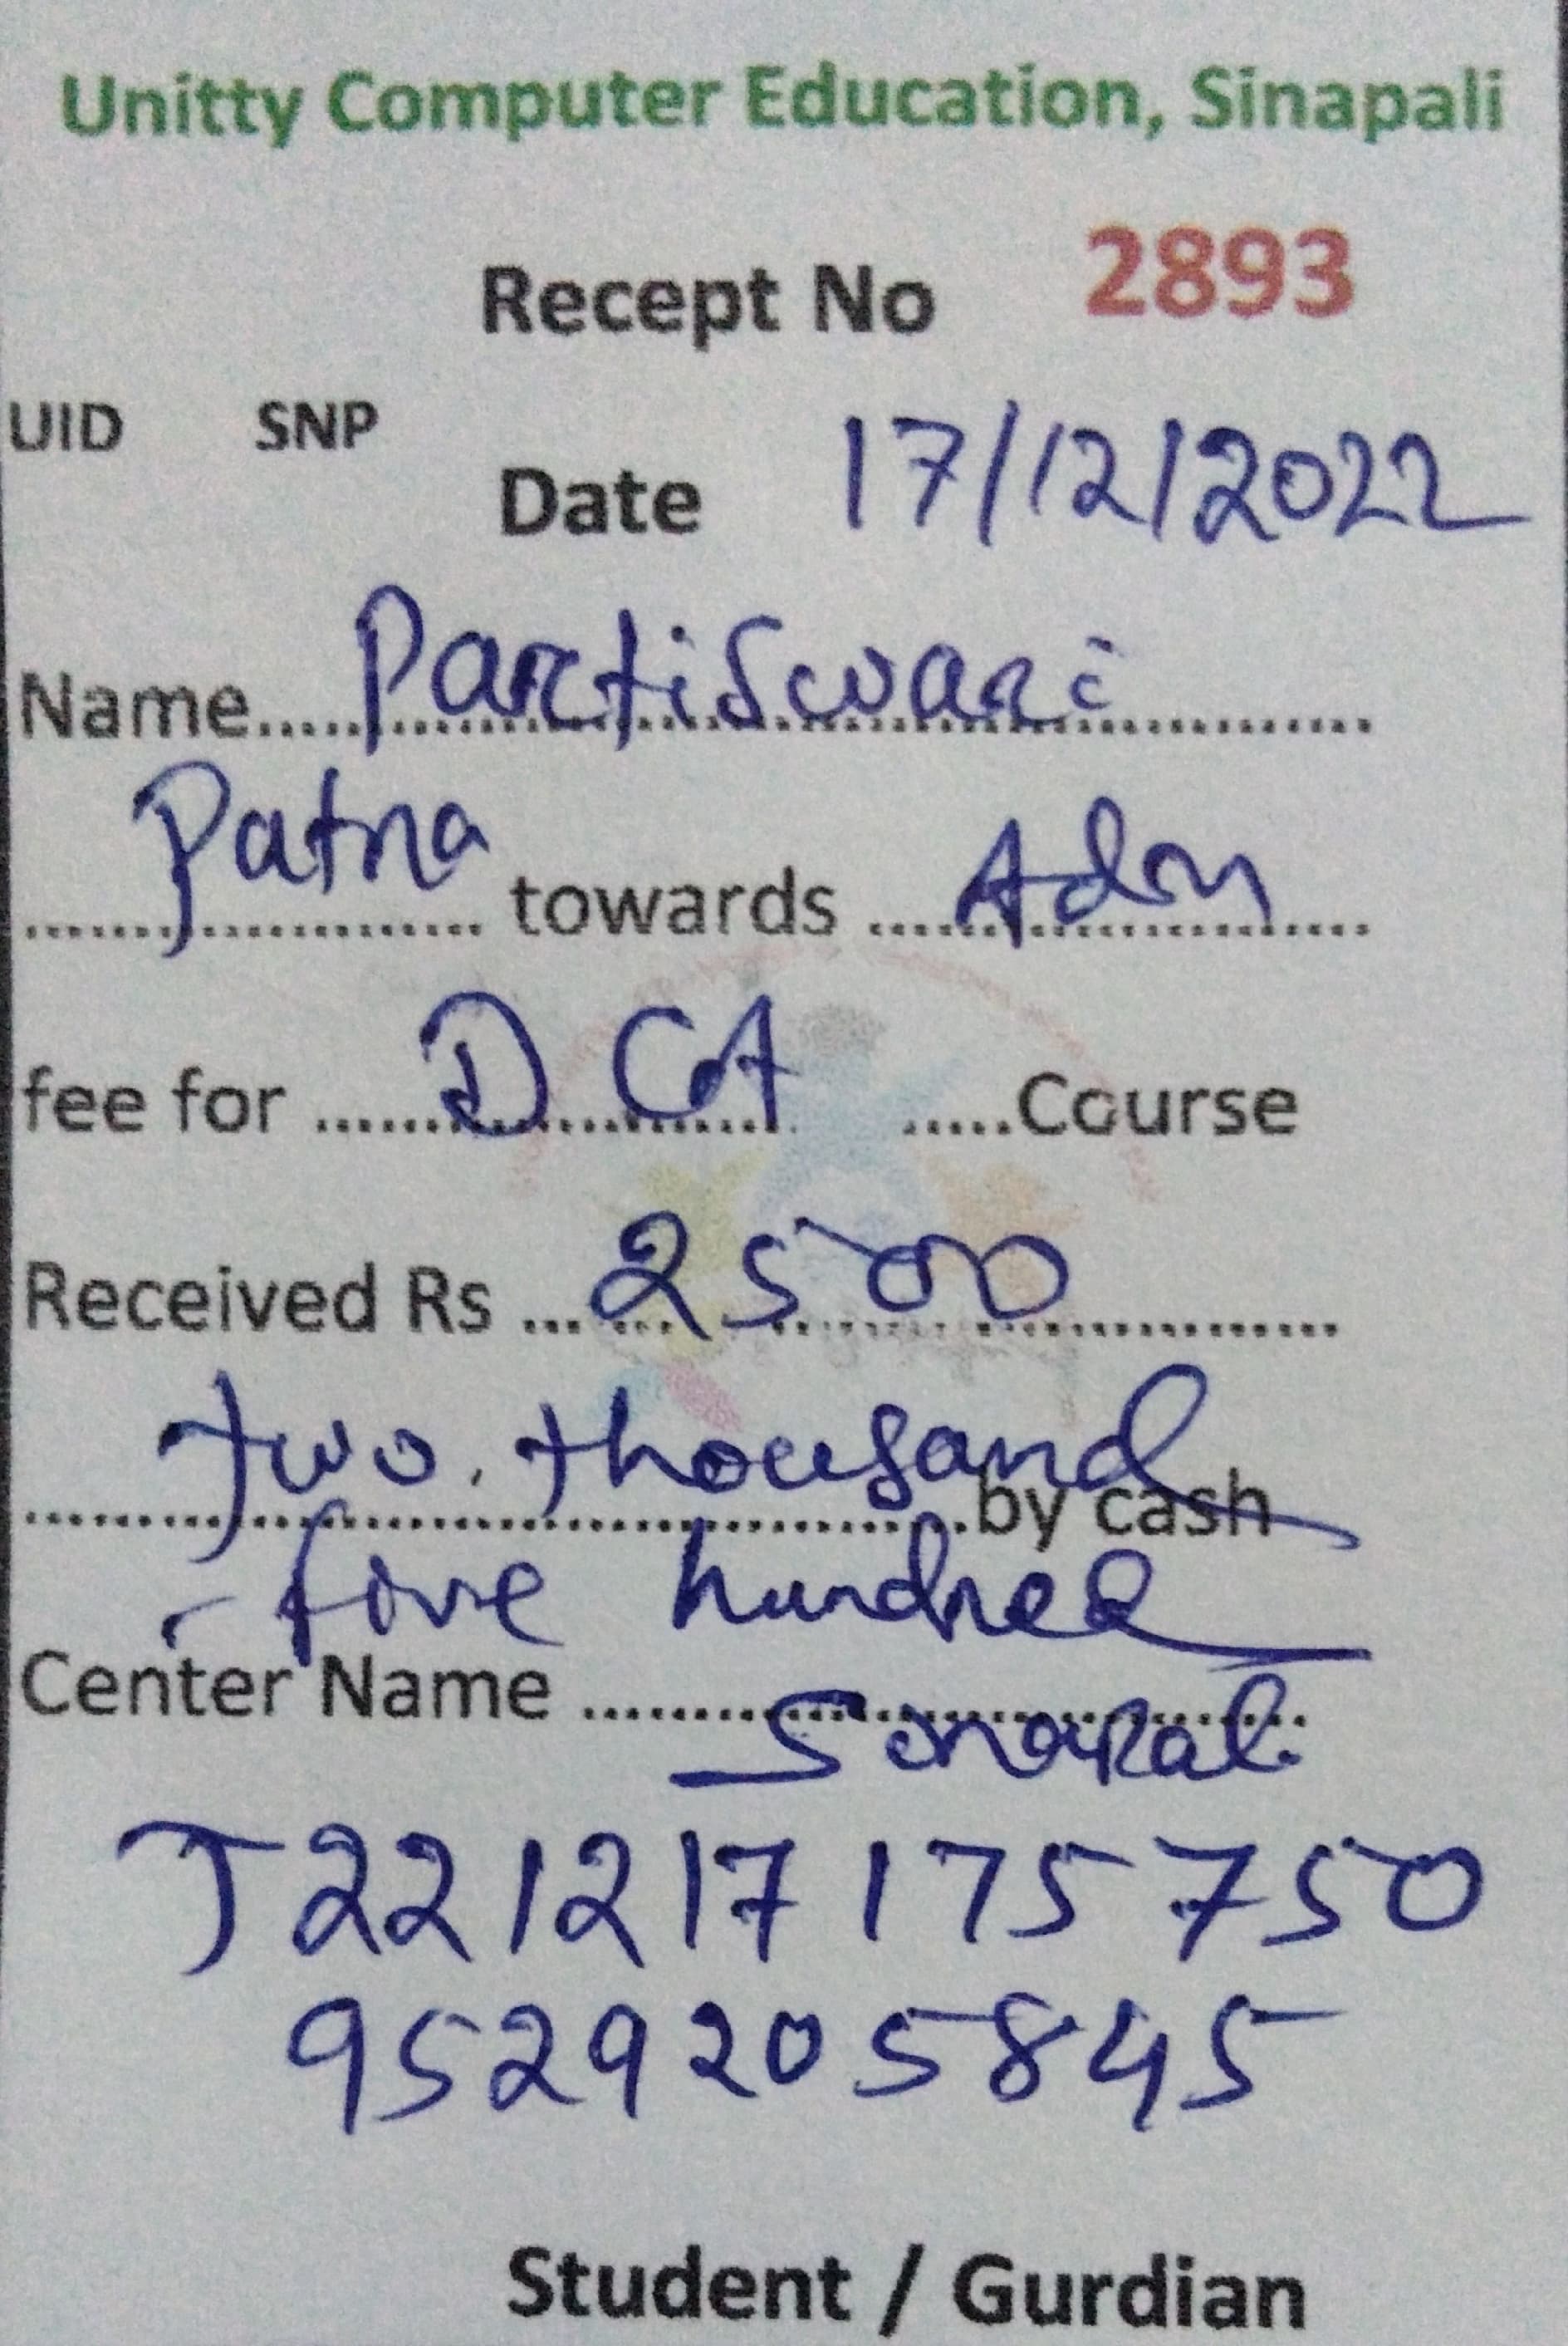 Unitty Computer Education, Sinapali
Recept No 2893
UID SNP
Date 17/12/2022
Name..... Partiswari
Patna towards Adm
fee for D CA Course
Received Rs 2500
two thousand by cash
five hundred
Center Name
Sinapali
T221217175750
9529205845
Student / Gurdian